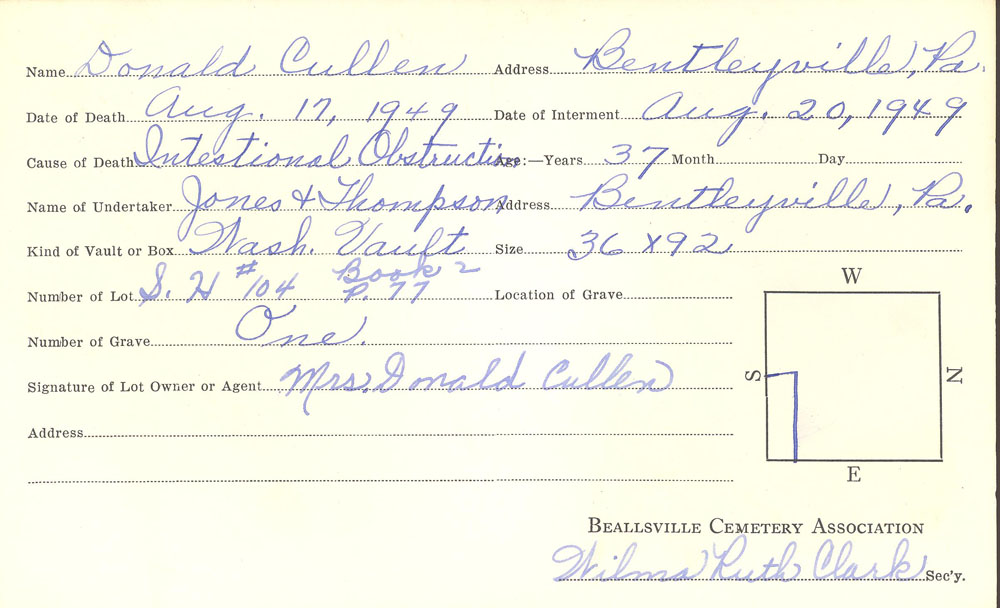 Name Donald Cullen Address Bentleyville, Pa.
Date of Death Aug. 17, 1949 Date of Interment Aug. 20, 1949
Cause of Death Intestional Obstruction Age:—Years 37 Month Day
Name of Undertaker Jones & Thompson Address Bentleyville, Pa.
Kind of Vault or Box Wash. Vault Size 36 x 92
Book 2
Number of Lot S. H #104 P. 77 Location of Grave
W
Number of Grave One.
Signature of Lot Owner or Agent Mrs. Donald Cullen
S N
Address
E
Beallsville Cemetery Association
Wilma Ruth Clark Sec'y.